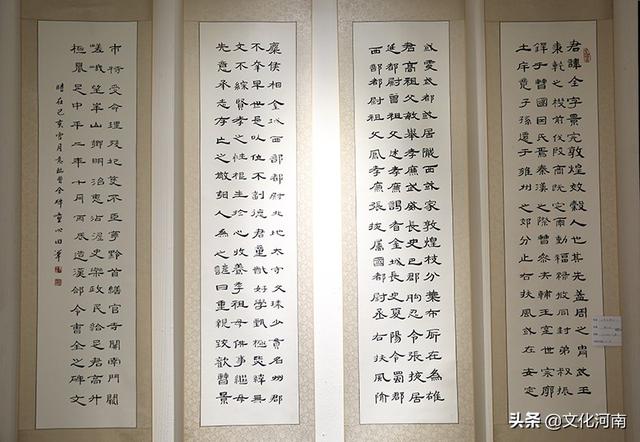 君諱全字景完敦煌效穀人也其先蓋周之胄武王
秉乾之機翦伐殷商既定爾勳福祿攸同封弟叔振
鐸于曹國因氏焉秦漢之際曹參夾輔王室世宗廓
土斥竟子孫遷于雍州之郊分止右扶風或在安定
或處武都或居隴西或家敦煌枝分葉布所在為雄
君高祖父敏舉孝廉武威長史巴郡朐忍令張掖居
延都尉曾祖父述孝廉謁者金城長史夏陽令蜀郡
西部都尉祖父鳳孝廉張掖屬國都尉丞右扶風隃
麋侯相金城西部都尉北地太守父琫少貫名州郡
不幸早世是以位不副德君童齔好學甄極毖緯無
文不綜賢孝之性根生於心收養季祖母供事繼母
先意承志存亡之敬鄉人為之諺曰重親致歡曹景
市特受命理殘圮芟不臣寧黔首繕官寺開南門闕
嵯峨望華山鄉明治惠沾渥吏樂政民給足君高升
極鼎足中平二年十月丙辰造漢郃令曹全之碑文
時在己亥雪月意臨曹全碑童心田筆
头条 @文化河南